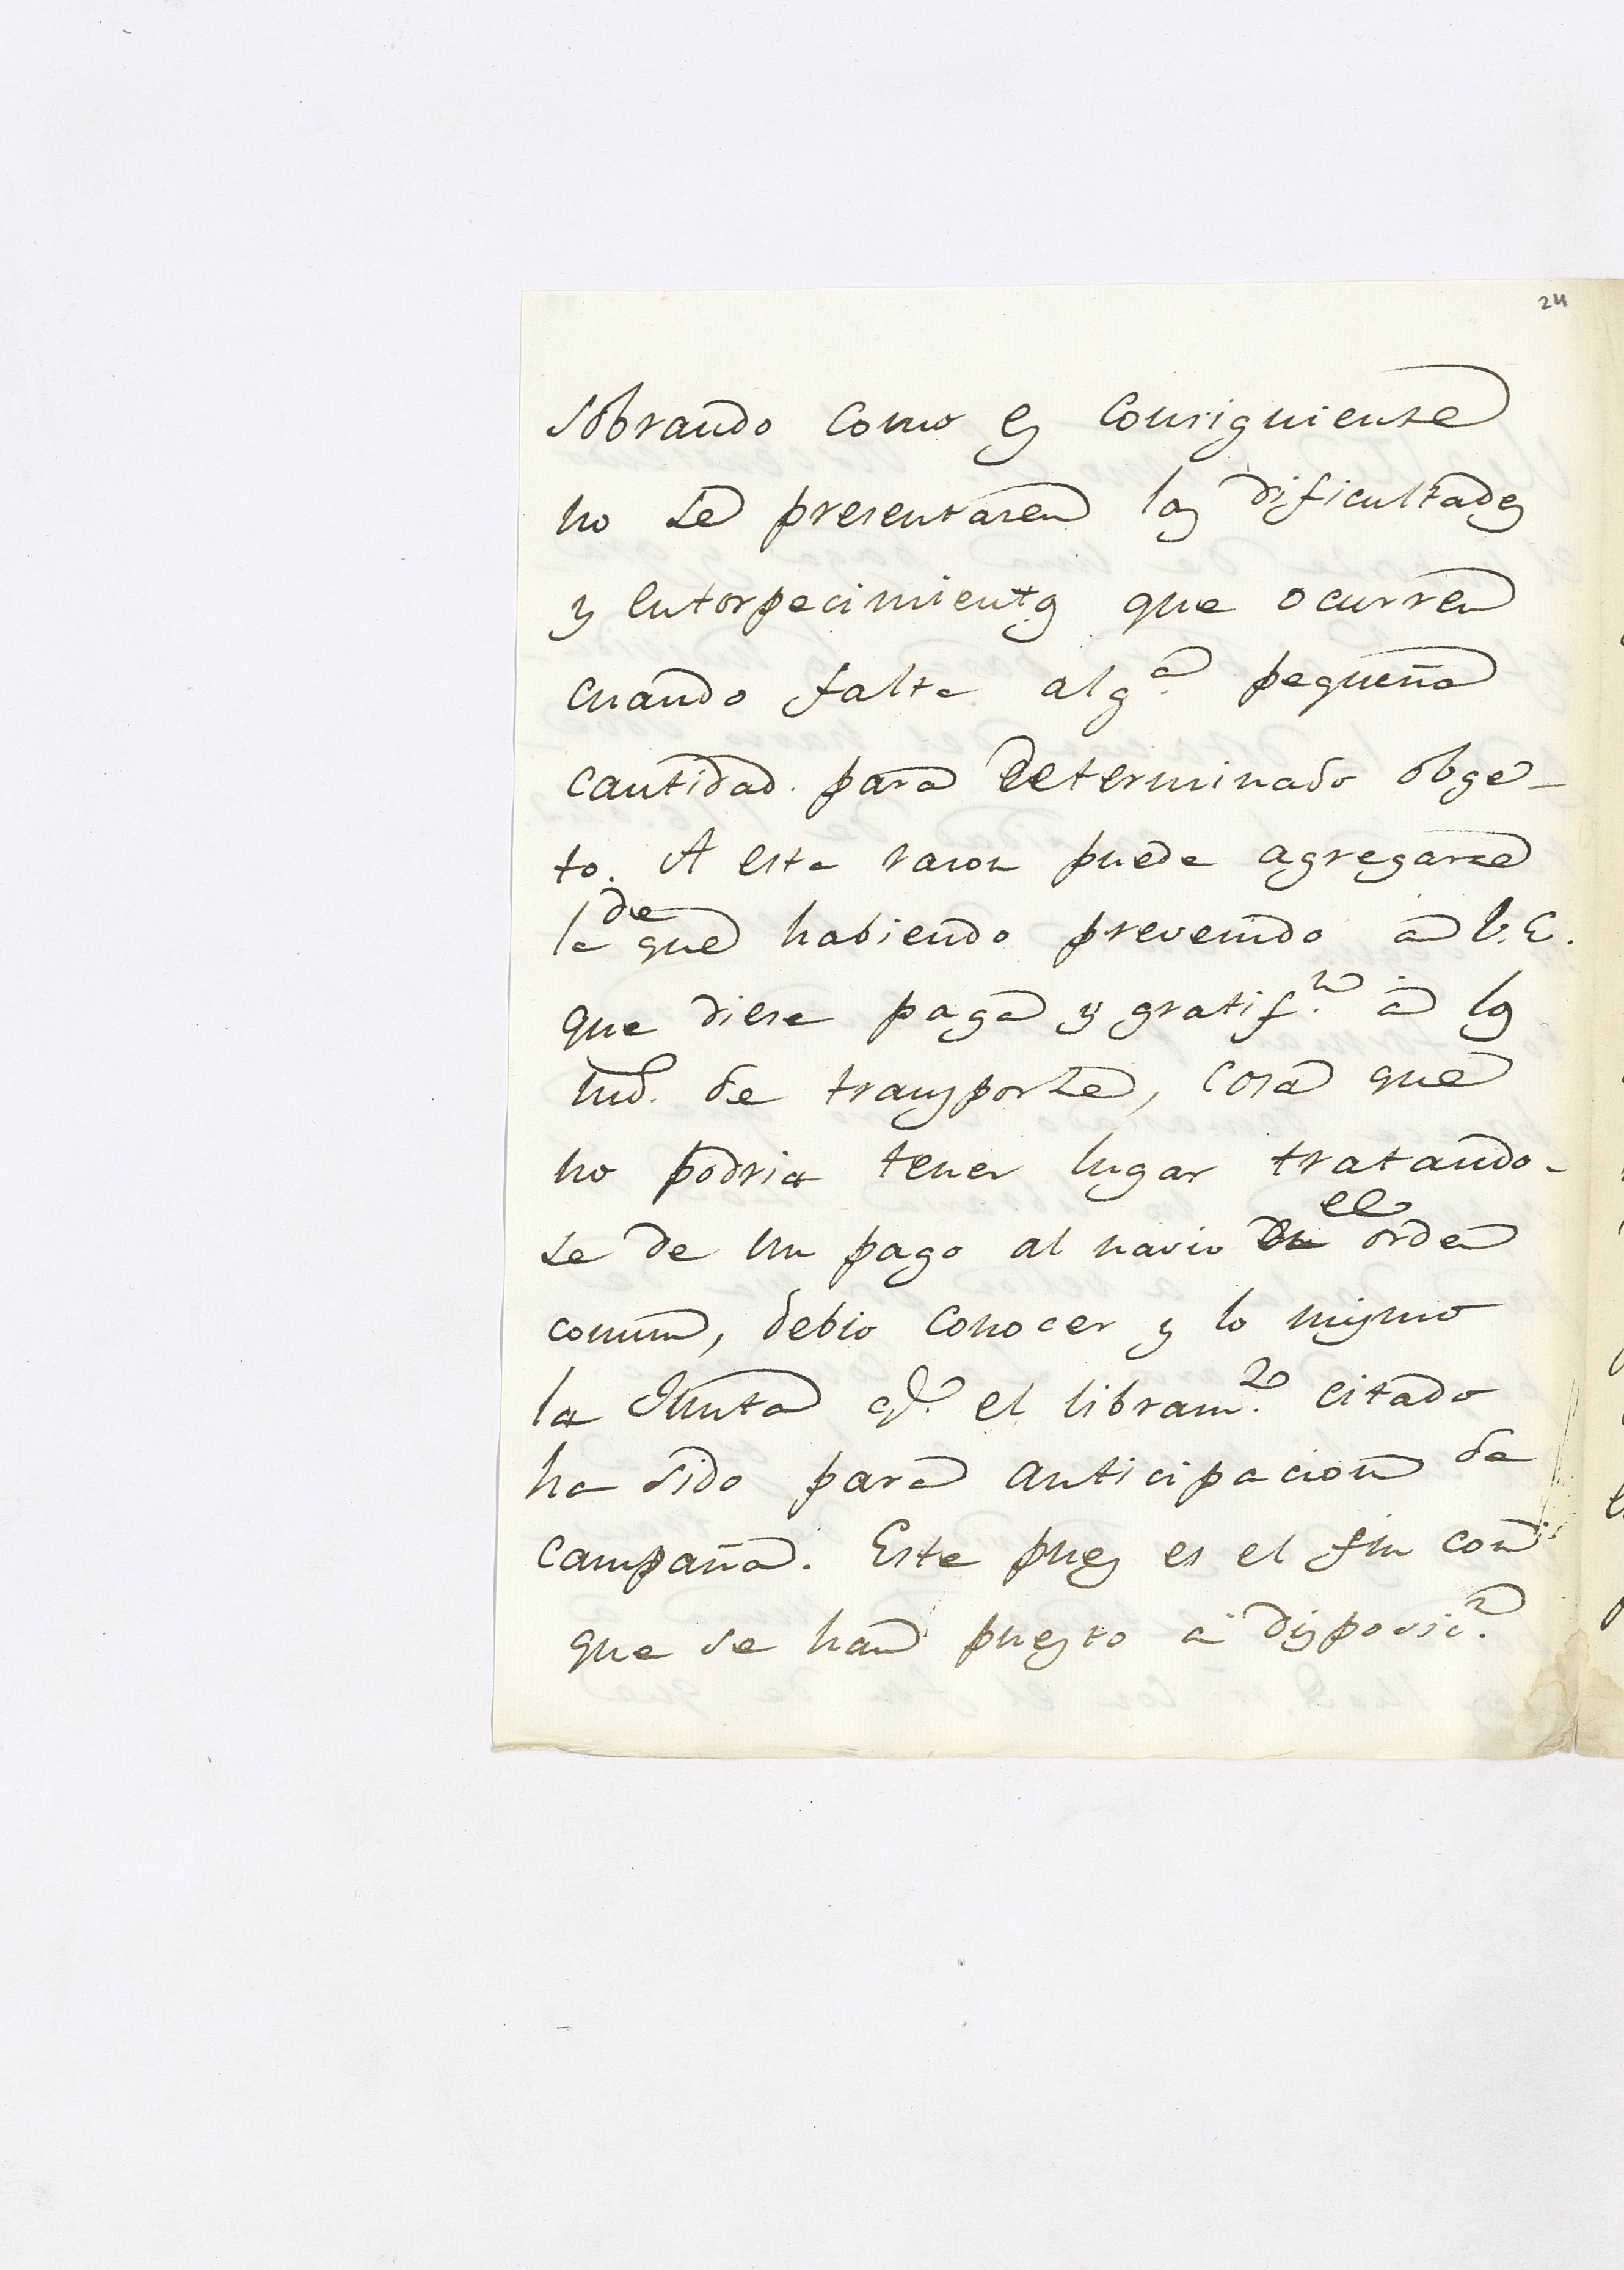 24
sobrando como es consiguiente
no se presentasen las dificultades
y entorpecimientos que ocurren
cuando falta alg.ª pequeña
cantidad para determinado obge-
to. A esta rason puede agregarse
la de que habiendo prevenido à V.E.
que diese paga y gratif.n à los
Ind. de transporte, cosa que
no podria tener lugar tratando-
se de un pago al navio en el orden
comun, debio conocer y lo mismo
la Junta q.e el libram.to citado
ha sido para anticipacion de
campaña. Este pues es el fin con
que se han puesto à disposic.n